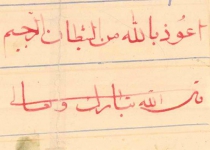 اعوذ بالله من الشيطان الرجيم
قال الله تبارك وتعالى